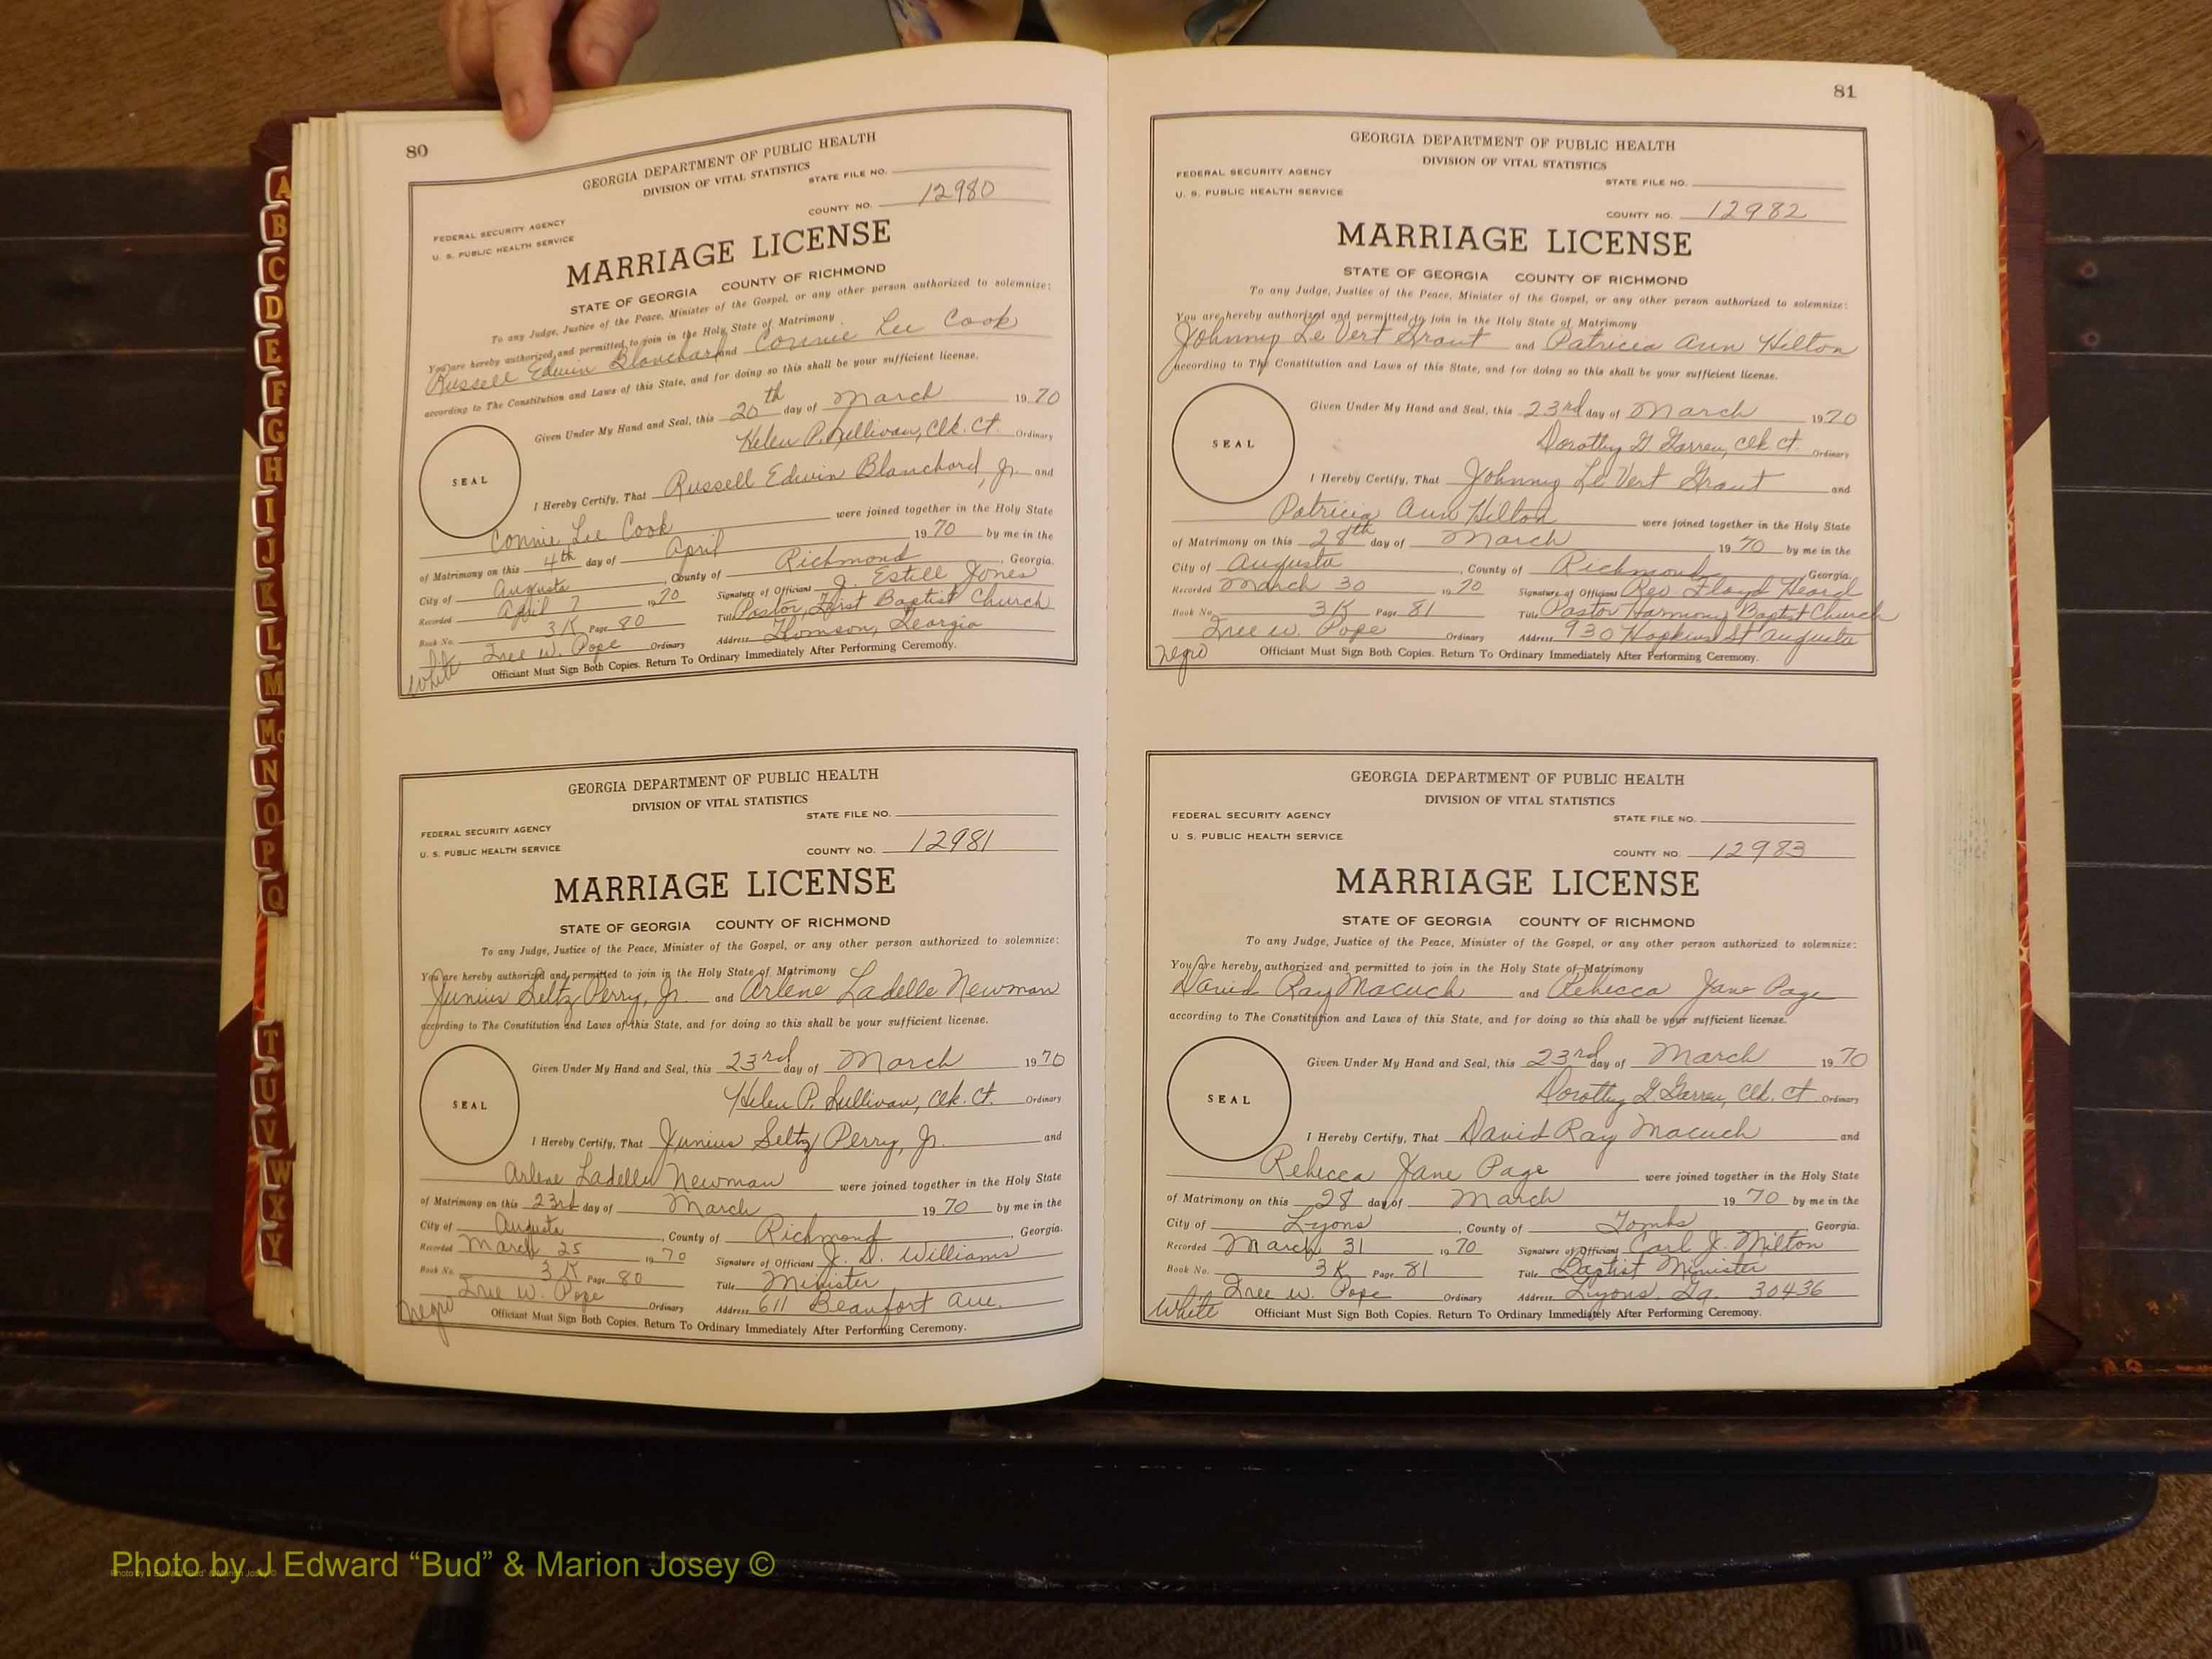 80
GEORGIA DEPARTMENT OF PUBLIC HEALTH
DIVISION OF VITAL STATISTICS
STATE FILE NO.
FEDERAL SECURITY AGENCY
U. S. PUBLIC HEALTH SERVICE
COUNTY NO. 12980
MARRIAGE LICENSE
STATE OF GEORGIA COUNTY OF RICHMOND
To any Judge, Justice of the Peace, Minister of the Gospel, or any other person authorized to solemnize:
You are hereby authorized and permitted to join in the Holy State of Matrimony
Russell Edwin Blanchard and Connie Lee Cook
according to The Constitution and Laws of this State, and for doing so this shall be your sufficient license.
Given Under My Hand and Seal, this 20th day of March 1970
Helen P. Sullivan, Clk. Ct. Ordinary
SEAL
I Hereby Certify, That Russell Edwin Blanchard, Jr. and
Connie Lee Cook were joined together in the Holy State
of Matrimony on this 4th day of April 1970 by me in the
City of Augusta, County of Richmond, Georgia.
Recorded April 7 1970 Signature of Officiant J. Estill Jones
Book No. 3K Page 80 Title Pastor, First Baptist Church
Iree W. Pope Ordinary Address Thomson, Georgia
white Officiant Must Sign Both Copies. Return To Ordinary Immediately After Performing Ceremony.
GEORGIA DEPARTMENT OF PUBLIC HEALTH
DIVISION OF VITAL STATISTICS
STATE FILE NO.
FEDERAL SECURITY AGENCY
U. S. PUBLIC HEALTH SERVICE
COUNTY NO. 12981
MARRIAGE LICENSE
STATE OF GEORGIA COUNTY OF RICHMOND
To any Judge, Justice of the Peace, Minister of the Gospel, or any other person authorized to solemnize:
You are hereby authorized and permitted to join in the Holy State of Matrimony
Junius Seltz Perry, Jr. and Arlene Ladelle Newman
according to The Constitution and Laws of this State, and for doing so this shall be your sufficient license.
Given Under My Hand and Seal, this 23rd day of March 1970
Helen P. Sullivan, Clk. Ct. Ordinary
SEAL
I Hereby Certify, That Junius Seltz Perry, Jr. and
Arlene Ladelle Newman were joined together in the Holy State
of Matrimony on this 23rd day of March 1970 by me in the
City of Augusta, County of Richmond, Georgia.
Recorded March 25 1970 Signature of Officiant J. D. Williams
Book No. 3K Page 80 Title Minister
Iree W. Pope Ordinary Address 611 Beaufort Ave.
negro Officiant Must Sign Both Copies. Return To Ordinary Immediately After Performing Ceremony.
81
GEORGIA DEPARTMENT OF PUBLIC HEALTH
DIVISION OF VITAL STATISTICS
FEDERAL SECURITY AGENCY
STATE FILE NO.
U. S. PUBLIC HEALTH SERVICE
COUNTY NO. 12982
MARRIAGE LICENSE
STATE OF GEORGIA COUNTY OF RICHMOND
To any Judge, Justice of the Peace, Minister of the Gospel, or any other person authorized to solemnize:
You are hereby authorized and permitted to join in the Holy State of Matrimony
Johnny Le Vert Grant and Patricia Ann Hilton
according to The Constitution and Laws of this State, and for doing so this shall be your sufficient license.
Given Under My Hand and Seal, this 23rd day of March 1970
Dorothy G. Garren, Clk. Ct. Ordinary
SEAL
I Hereby Certify, That Johnny Le Vert Grant and
Patricia Ann Hilton were joined together in the Holy State
of Matrimony on this 28th day of March 1970 by me in the
City of Augusta, County of Richmond, Georgia.
Recorded March 30 1970 Signature of Officiant Rev Floyd Heard
Book No. 3K Page 81 Title Pastor Harmony Baptist Church
Iree W. Pope Ordinary Address 930 Hopkins St Augusta
negro Officiant Must Sign Both Copies. Return To Ordinary Immediately After Performing Ceremony.
GEORGIA DEPARTMENT OF PUBLIC HEALTH
DIVISION OF VITAL STATISTICS
FEDERAL SECURITY AGENCY
STATE FILE NO.
U. S. PUBLIC HEALTH SERVICE
COUNTY NO. 12983
MARRIAGE LICENSE
STATE OF GEORGIA COUNTY OF RICHMOND
To any Judge, Justice of the Peace, Minister of the Gospel, or any other person authorized to solemnize:
You are hereby authorized and permitted to join in the Holy State of Matrimony
David Ray Macuch and Rebecca Jane Page
according to The Constitution and Laws of this State, and for doing so this shall be your sufficient license.
Given Under My Hand and Seal, this 23rd day of March 1970
Dorothy G. Garren, Clk. Ct. Ordinary
SEAL
I Hereby Certify, That David Ray Macuch and
Rebecca Jane Page were joined together in the Holy State
of Matrimony on this 28 day of March 1970 by me in the
City of Lyons, County of Tombs, Georgia.
Recorded March 31 1970 Signature of Officiant Carl J. Milton
Book No. 3K Page 81 Title Baptist Minister
Iree W. Pope Ordinary Address Lyons, Ga. 30436
white Officiant Must Sign Both Copies. Return To Ordinary Immediately After Performing Ceremony.
A
B
C
D
E
F
G
H
I
J
K
L
M
Mc
N
O
P
Q
T
U
V
W
X
Y
Photo by J Edward “Bud” & Marion Josey ©